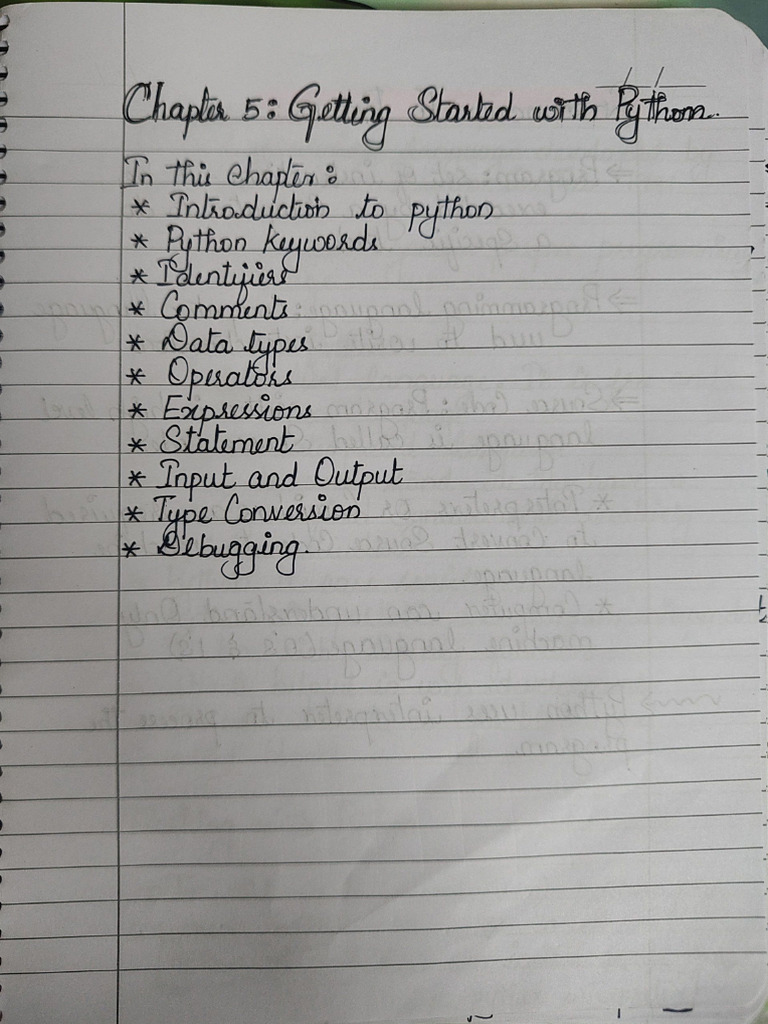 Chapter 5: Getting Started with Python.
In this chapter:
* Introduction to python
* Python keywords
* Identifiers
* Comments
* Data types
* Operators
* Expressions
* Statement
* Input and Output
* Type Conversion
* Debugging.